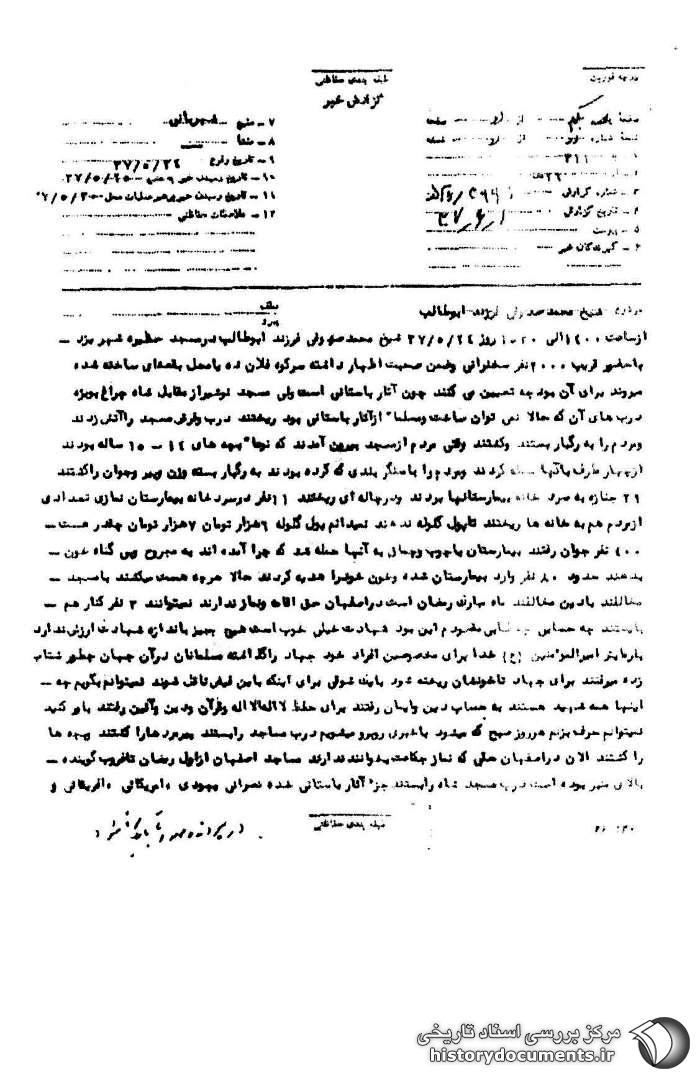 درجه فوریت
طبقه بندی حفاظتی
گزارش خبر
صفحه یکم از دو صفحه
نسخه شماره از نسخه
۳۱۱
۳ – شماره گزارش
۴ – تاریخ گزارش ۳۷/۶/۱
۵ – پیوست
۶ – گیرندگان خبر
۷ – منبع شهربانی
۸ – منشأ
۹ – تاریخ وقوع ۳۷/۵/۲۴
۱۰ – تاریخ رسیدن خبر به منبع ۳۷/۵/۲۵
۱۱ – تاریخ رسیدن خبر به رهبر عملیات محل ۳۷/۵/۳۰
۱۲ – ملاحظات حفاظتی
درباره شیخ محمد صدوقی فرزند ابوطالب
از ساعت الی روز ۳۷/۵/۲۴ شیخ محمد صدوقی فرزند ابوطالب در مسجد حظیره شهر یزد –
با حضور قریب ۲۰۰۰ نفر سخنرانی و ضمن صحبت اظهار داشته سرکوه فلان ده یا محل بقعه‌ای ساخته شده
میروند برای آن بودجه تعیین می کنند چون آثار باستانی است ولی مسجد نوشیراز مقابل شاه چراغ بویژه
درب های آن که حالا نمی توان ساخت و مسلماً از آثار باستانی بود ریختند درب و فرش مسجد را آتش زدند
و مردم را به رگبار بستند و کشتند وقتی مردم از مسجد بیرون آمدند که بچه های ۱۴ – ۱۵ ساله بودند
از چهار طرف به آنها حمله کردند و مردم را با سنگر بندی که کرده بودند به رگبار بسته وزن و پیر و جوان را کشتند
۲۱ جنازه به سرد خانه بیمارستانها بردند و در چاله ای ریختند ۱۱ نفر در سرد خانه بیمارستان نمازی تعدادی
از مردم هم به خانه ها ریختند تا پول گلوله ندهند نمیدانم پول گلوله ۶ هزار تومان ۷ هزار تومان چقدر هست –
۴۰۰ نفر جوان رفتند بیمارستان با چوب و چماق به آنها حمله شد که چرا آمده اند به مجروح بی گناه خون –
بدهند حدود ۸۰ نفر وارد بیمارستان شده و خون خود را هدیه کردند حالا هر چه هست میکشند با مسجد –
مخالفند با دین مخالفند ماه مبارک رمضان است در اصفهان حق اقامه نماز ندارند نمیتوانند ۳ نفر کنار هم –
بایستند چه حسابی چه کتابی مقصودم این بود شهادت خیلی خوب است هیچ چیز باندازه شهادت ارزش ندارد
امیرالمؤمنین (ع) خدا برای مخصوصین افراد خود جهاد را گذاشته مسلمانان در آن جهان چطور شتاب
زده میرفتند برای جهاد تا خونشان ریخته شود با یک شوقی برای اینکه باین فیض نائل شوند نمیتوانم بگویم چه –
اینها همه شهید هستند به حساب دین و ایمان رفتند برای حفظ لااله الا اله و قرآن و دین و آئین رفتند باور کنید
نمیتوانم حرف بزنم هر روز صبح که میشود با خبری روبرو میشویم درب مساجد را بستند پیرمردها را کشتند بچه ها
را کشتند الان در اصفهان حتی که نماز جماعت بخوانند ندارند مساجد اصفهان از اول رمضان تا غروب گوینده –
بالای منبر بوده است درب مسجد شاه را بستند جزء آثار باستانی شده نصرانی یهودی امریکائی افریقائی و
طبقه بندی حفاظتی
در پرونده
مرکز بررسی اسناد تاریخی
historydocuments.ir